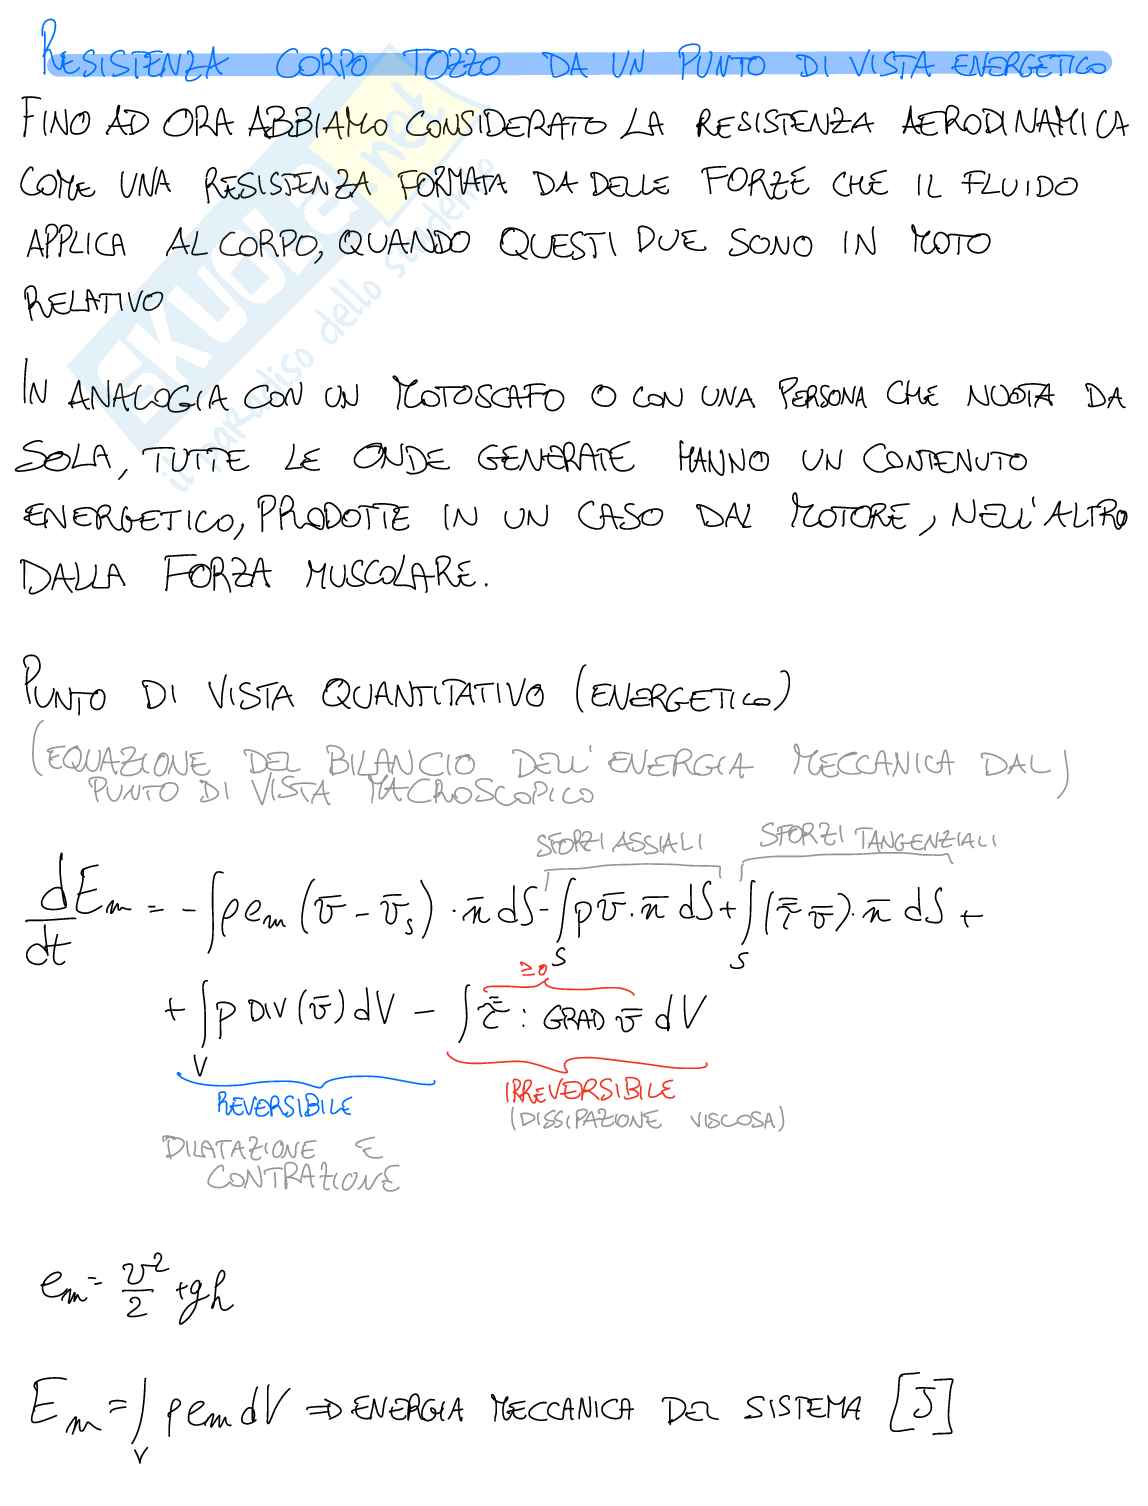 RESISTENZA CORPO TOZZO DA UN PUNTO DI VISTA ENERGETICO
FINO AD ORA ABBIAMO CONSIDERATO LA RESISTENZA AERODINAMICA
COME UNA RESISTENZA FORMATA DA DELLE FORZE CHE IL FLUIDO
APPLICA AL CORPO, QUANDO QUESTI DUE SONO IN MOTO
RELATIVO
SKUOLA.net
il paradiso dello studente
IN ANALOGIA CON UN MOTOSCAFO O CON UNA PERSONA CHE NUOTA DA
SOLA, TUTTE LE ONDE GENERATE HANNO UN CONTENUTO
ENERGETICO, PRODOTTE IN UN CASO DAL MOTORE, NELL'ALTRO
DALLA FORZA MUSCOLARE.
PUNTO DI VISTA QUANTITATIVO (ENERGETICO)
(EQUAZIONE DEL BILANCIO DELL'ENERGIA MECCANICA DAL)
PUNTO DI VISTA MACROSCOPICO
SFORZI ASSIALI SFORZI TANGENZIALI
dE_m/dt = - ∫ρe_m (v̄ - v̄_s) · n̄ dS - ∫_S p v̄ · n̄ dS + ∫_S (τ̿ v̄) · n̄ dS +
≥0
+ ∫_V p DIV (v̄) dV - ∫ τ̿ : GRAD v̄ dV
REVERSIBILE IRREVERSIBILE
(DISSIPAZIONE VISCOSA)
DILATAZIONE E
CONTRAZIONE
e_m = v²/2 + gh
E_m = ∫_V ρe_m dV ⇒ ENERGIA MECCANICA DEL SISTEMA [J]